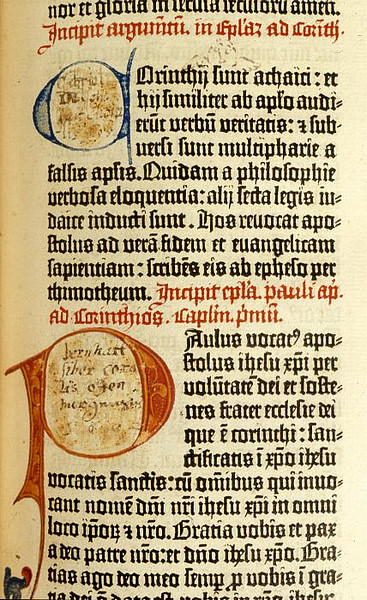 nor et gloria in secula seculorū amen.
Incipit argumentū. in Eplaȝ ad Corinth.
Corinthij sunt achaici: et
hij similiter ab aplo audi-
erūt verbū veritatis: ⁊ sub-
versi sunt multipharie a
falsis aplis. Quidam a philosophie
verbosa eloquentia: alij secta legis iu-
daice inducti sunt. Hos revocat apo-
stolus ad verā fidem et euangelicam
sapientiam: scribēs eis ab epheso per
thimotheum. Incipit epla. pauli ap̄.
ad Corinthios. Caplm. p̄mū.
Paulus vocatꝰ apo-
stolus ihesu xp̄i per
volūtatē dei et soste-
nes frater ecclesie dei
que ē corinthi: san-
ctificatis ī xp̄o ihesu
vocatis sanctis: cū omnibus qui invo-
cant nomē dn̄i nr̄i ihesu xp̄i in omni
loco ip̄oꝝ ⁊ nr̄o. Gratia vobis et pax
a deo patre nr̄o: et dn̄o ihesu xp̄o. Gra-
tias ago deo meo semꝑ ꝓ vobis ī gra-